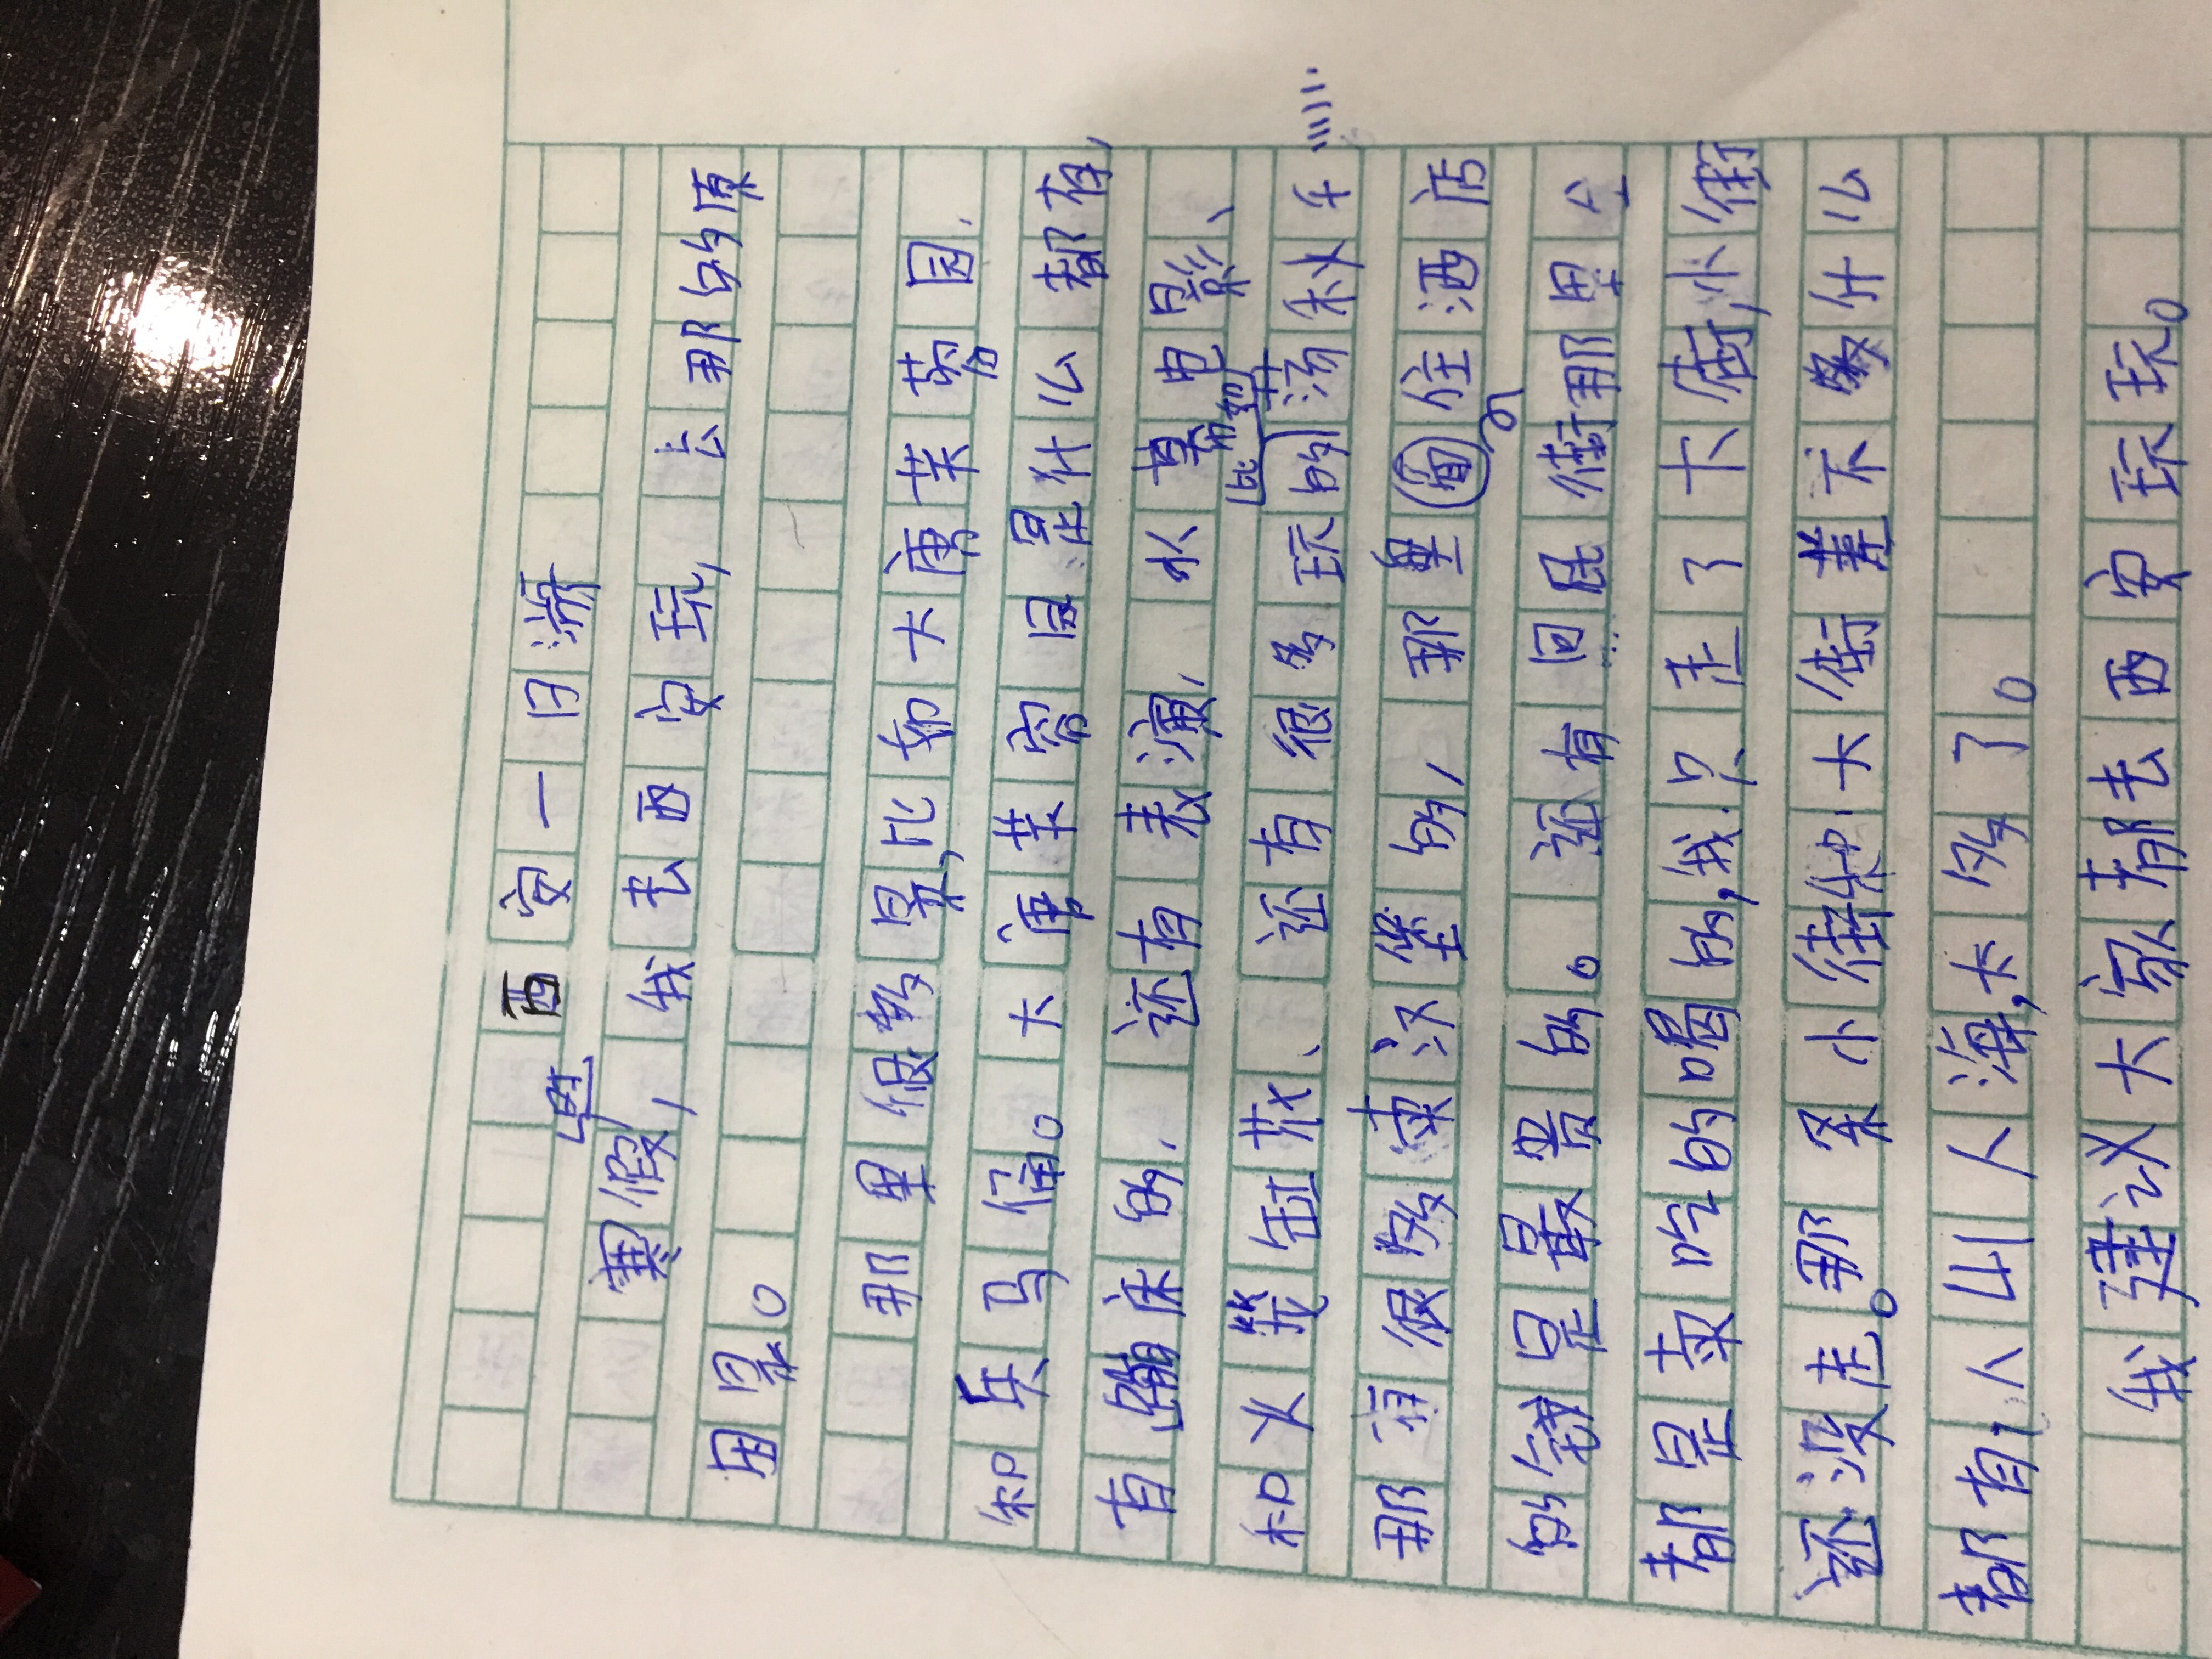 西安一日游
寒假里，我去西安玩，去那的原
因是。
那里很多景，比如大唐芙蓉园，
和兵马俑。大唐芙蓉园是什么都有，
有蹦床的，还有表演，水幕电影、
和火缸花、还有很多玩的比如荡秋千……
那有很多卖汉堡的，那里面住酒店
的钱是最贵的。还有回民街那里
都是卖吃的喝的，我只走了大街，小街
还没走。那条小街和大街差不多什么
都有，人山人海，太多了。
我建议大家都去西安玩玩。